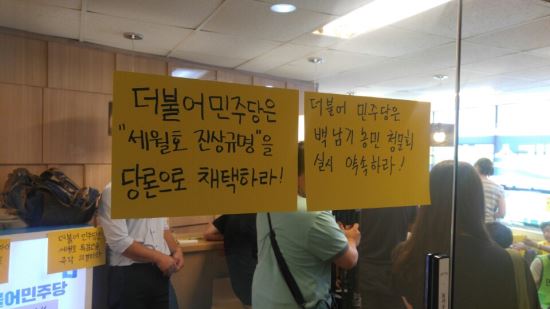 더불어민주당은
"세월호 진상규명"을
당론으로 채택하라!
더불어 민주당은
백남기 농민 청문회
실시 약속하라!
더불어 민주당은
세월호 특검안
불어민주당